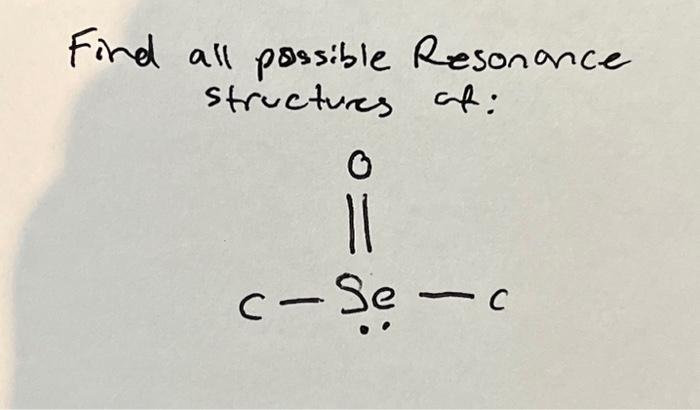 Find all possible Resonance
structures of:
O
||
C — Se — C
••